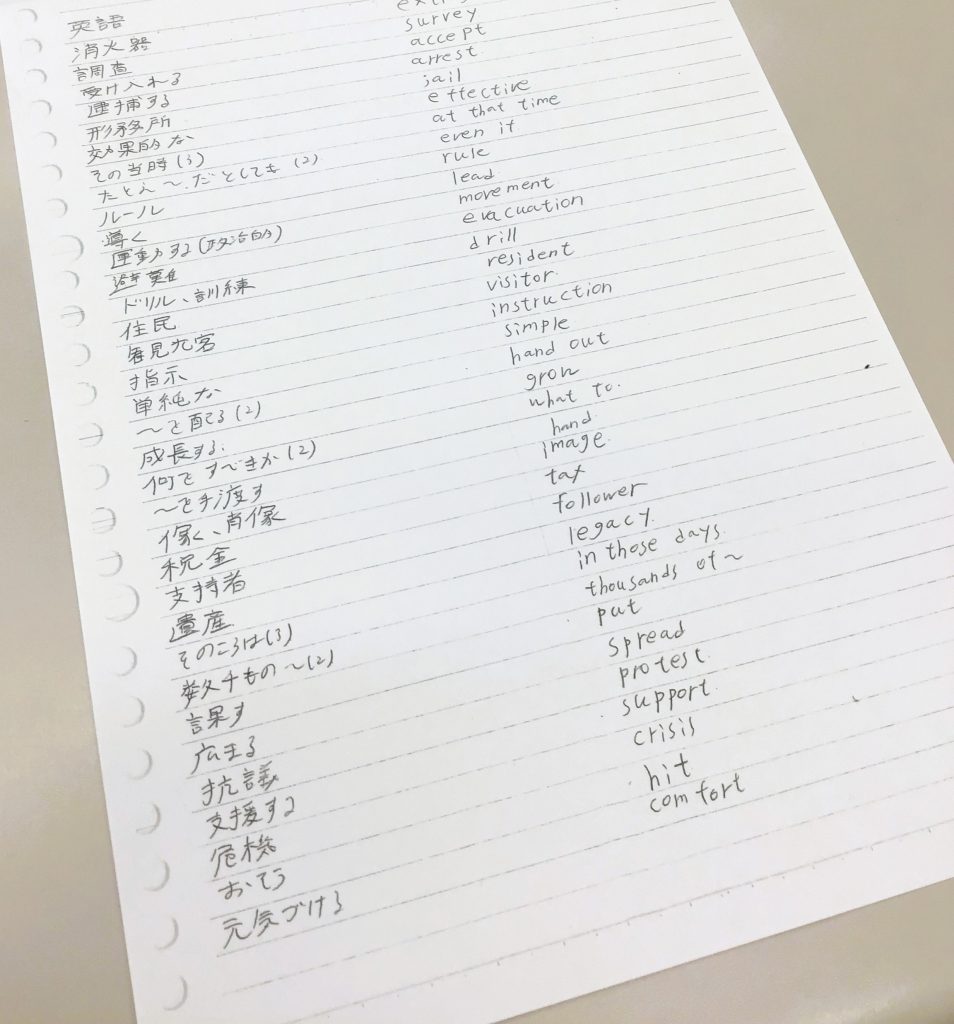 英語
消火器
調査 survey
受け入れる accept
逮捕する arrest
形務所 jail
効果的な effective
その当時(3) at that time
たとえ〜だとしても(2) even if
ルール rule
導く lead
運動する(政治的) movement
避難 evacuation
ドリル、訓練 drill
住民 resident
visitor
指示 instruction
単純な simple
〜を配る(2) hand out
成長する grow
何をすべきか(2) what to.
〜を手渡す hand
像、肖像 image
税金 tax
支持者 follower
遺産 legacy
そのころは(3) in those days
数千もの〜(2) thousands of〜
課す put
広まる spread
抗議 protest
支援する support
危機 crisis
おそう hit
元気づける comfort